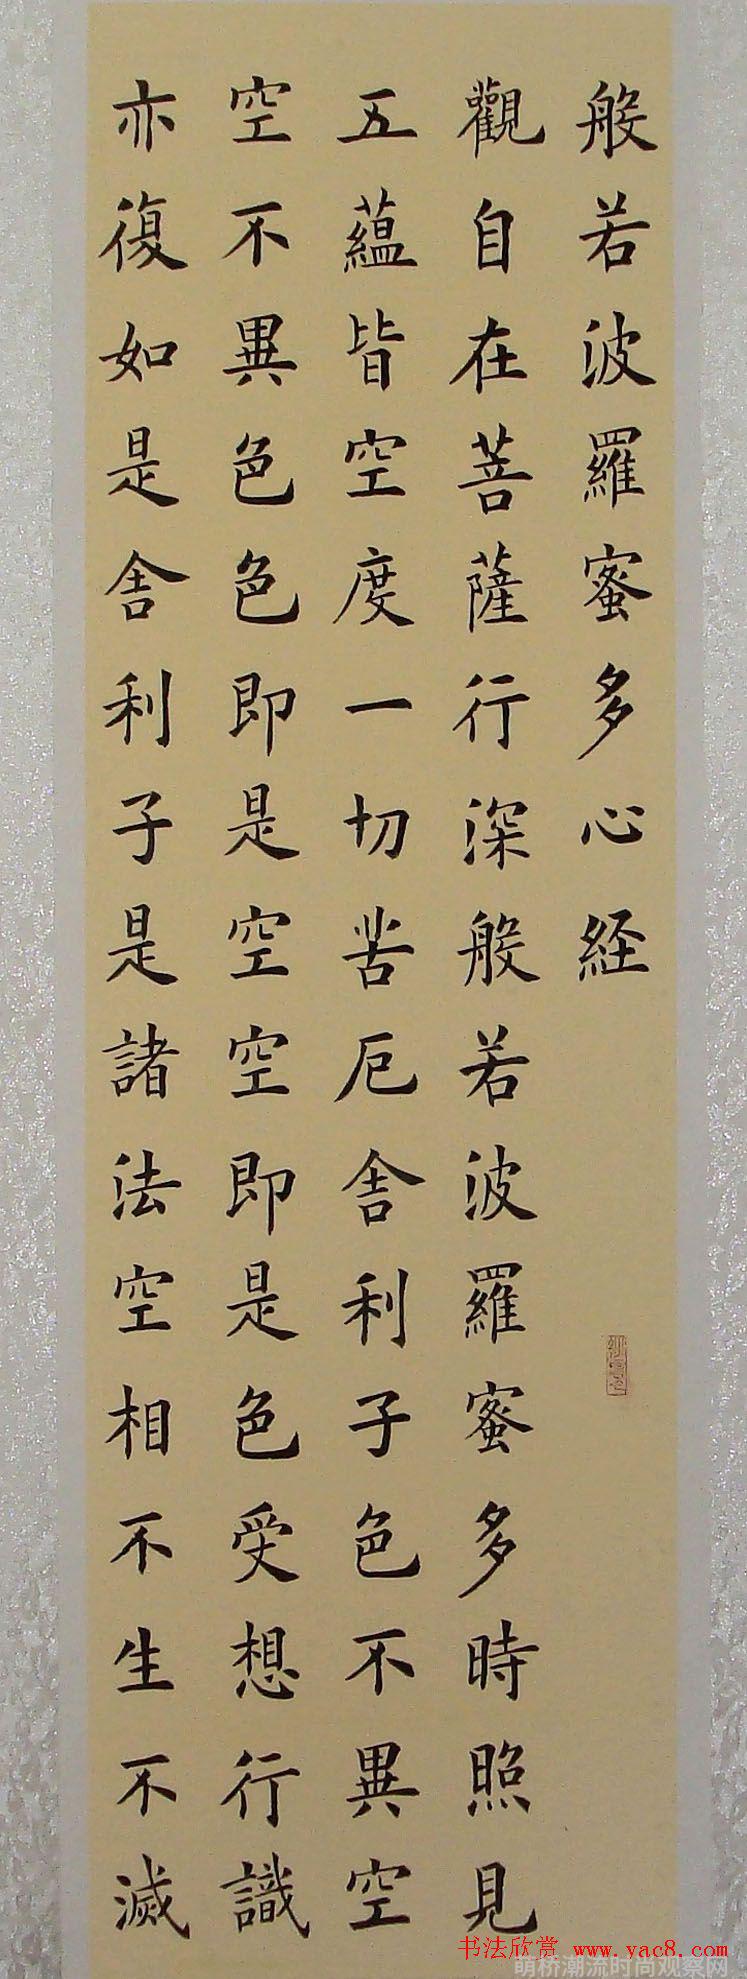 般若波羅蜜多心経
觀自在菩薩行深般若波羅蜜多時照見
五蘊皆空度一切苦厄舍利子色不異空
空不異色色即是空空即是色受想行識
亦復如是舍利子是諸法空相不生不滅
书法欣赏 www.yac8.com
萌桥潮流时尚观察网